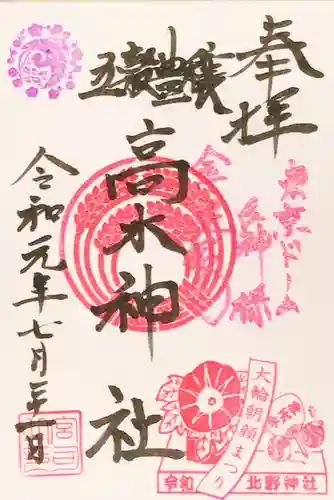 奉拝
五穀豊穣
高木神社
令和元年七月二十一日
東京ドーム
大輪朝顔まつり
令和
北野神社